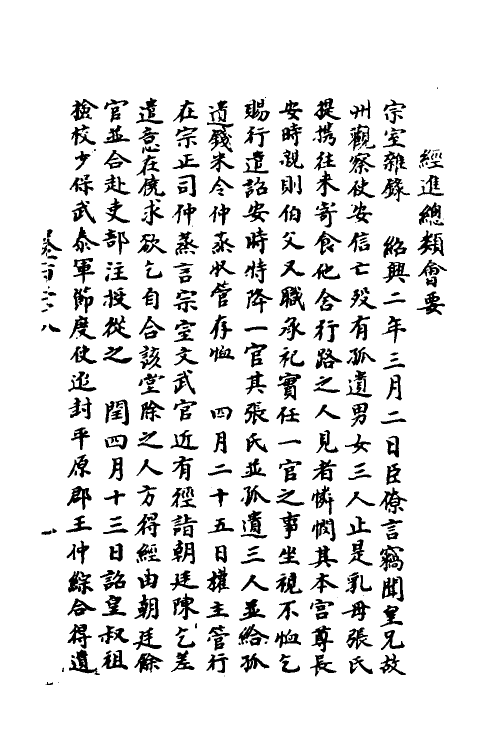 經進總類會要
宗室雜錄　紹興二年三月二日臣僚言竊聞皇兄故
州觀察使安信亡殁有孤遺男女三人止是乳母張氏
提携往来寄食他舍行路之人見者憐憫其本宫尊長
安時親則伯父又職承祀實任一官之事坐視不恤乞
賜行遣詔安時特降一官其張氏並孤遺三人並給孤
遺錢米令仲蒸收管存恤　四月二十五日權主管行
在宗正司仲蒸言宗室文武官近有徑詣朝廷陳乞差
遣意在僥求欲乞自合該堂除之人方得經由朝廷餘
官並合赴吏部注授從之　閏四月十三日詔皇叔祖
檢校少保武泰軍節度使追封平原郡王仲綜合得遺
卷一百二十八
一